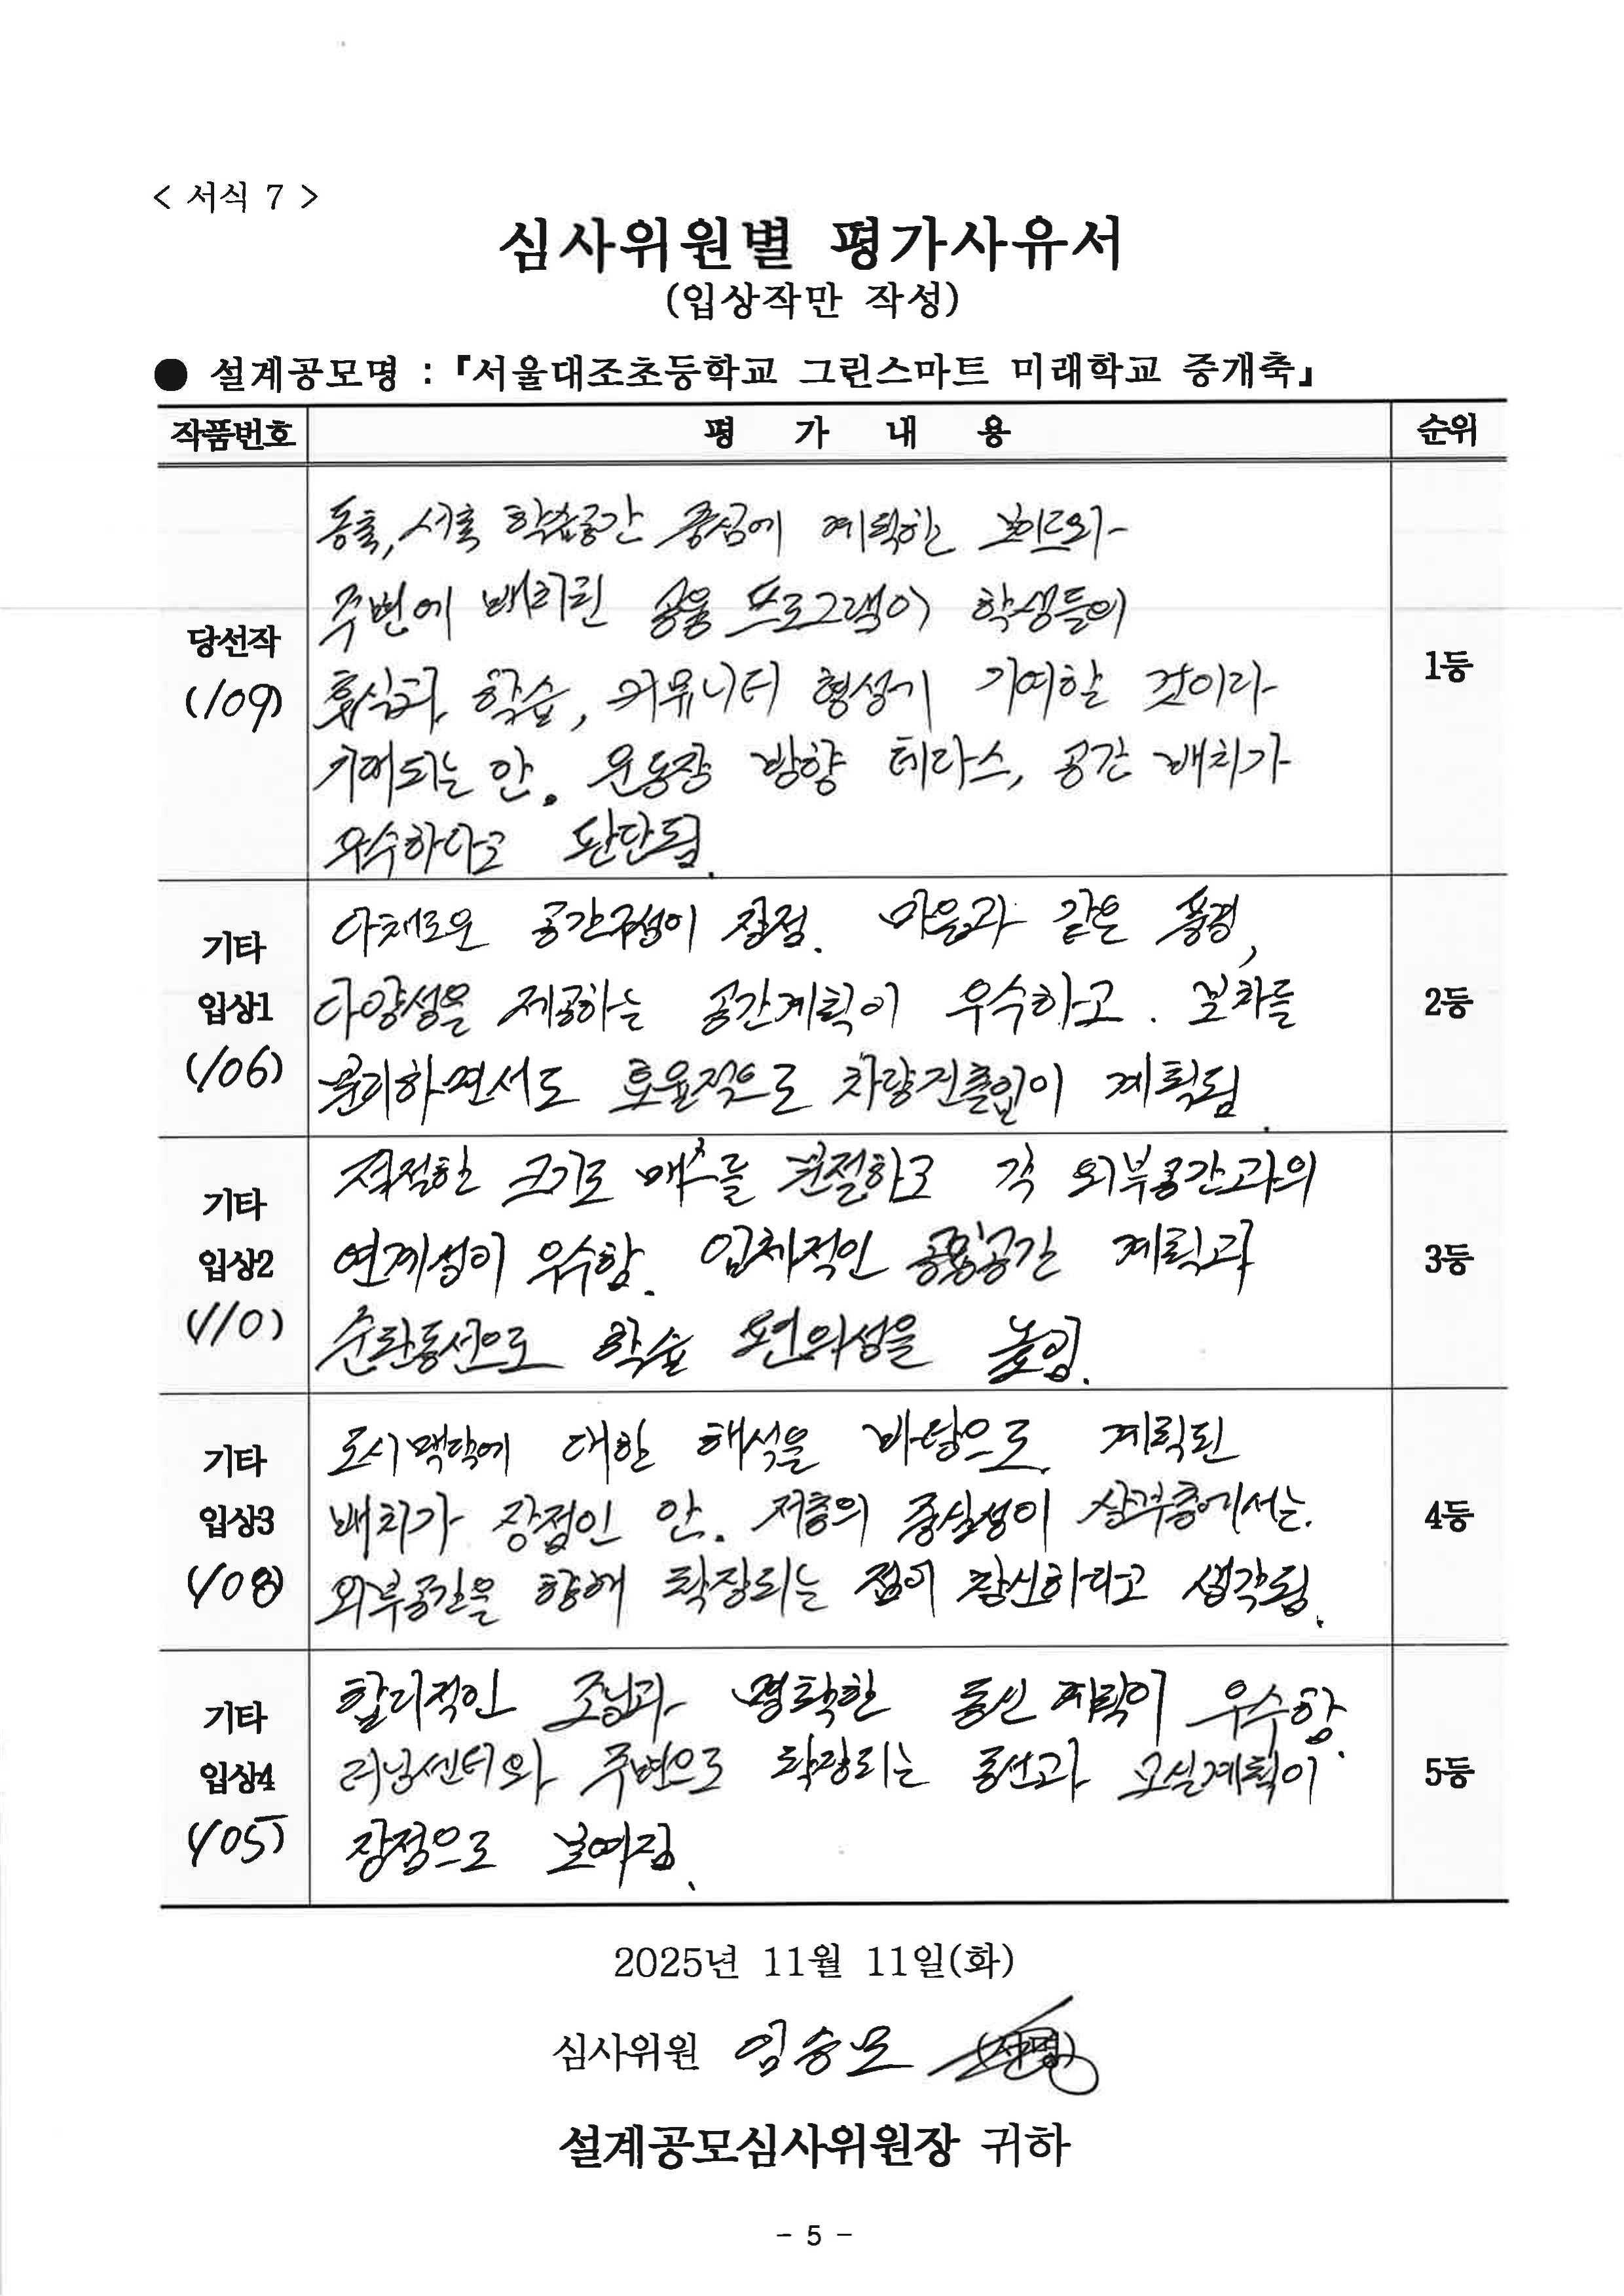 < 서식 7 >
심사위원별 평가사유서
(입상작만 작성)
● 설계공모명 : 『서울대조초등학교 그린스마트 미래학교 증개축』
작품번호 평 가 내 용 순위
당선작
(109)
동측, 서측 학습공간 중심에 계획한 보이드와
주변에 배치된 공용 프로그램이 학생들의
휴식과 학습, 커뮤니티 형성에 기여할 것이라
기대되는 안. 운동장 방향 테라스, 공간 배치가
우수하다고 판단됨.
1등
기타
입상1
(106)
다채로운 공간구성이 장점. 마을과 같은 풍경,
다양성을 제공하는 공간계획이 우수하고. 보차를
분리하면서도 효율적으로 차량진출입이 계획됨.
2등
기타
입상2
(110)
적절한 크기로 매스를 분절하고 각 외부공간과의
연계성이 우수함. 입체적인 공용공간 계획과
순환동선으로 학습 편의성을 높임.
3등
기타
입상3
(108)
도시맥락에 대한 해석을 바탕으로 계획된
배치가 장점인 안. 저층의 중심성이 상부층에서는
외부공간을 향해 확장되는 점이 참신하다고 생각됨.
4등
기타
입상4
(105)
합리적인 조닝과 명확한 동선계획이 우수함.
러닝센터와 주변으로 확장되는 동선과 교실계획이
장점으로 보여짐.
5등
2025년 11월 11일(화)
심사위원 임승모 (서명)
설계공모심사위원장 귀하
- 5 -